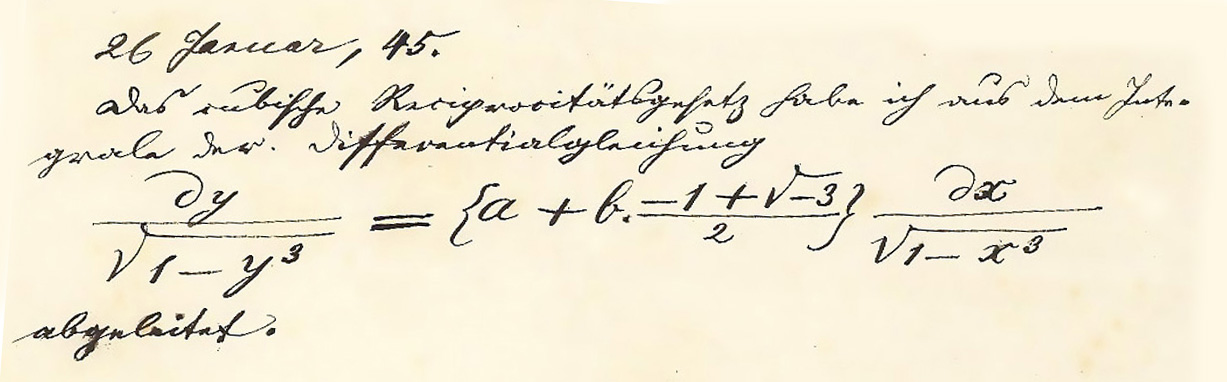 26 Januar, 45.
Das cubische Reciprocitätsgesetz habe ich aus dem Inte-
grale der. Differentialgleichung
∂y/√(1 − y³) = {a + b. (−1 + √−3)/2} ∂x/√(1 − x³)
abgeleitet.